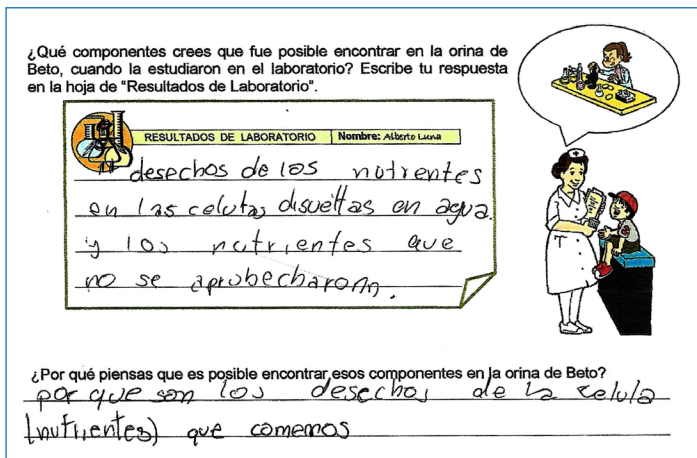 ¿Qué componentes crees que fue posible encontrar en la orina de
Beto, cuando la estudiaron en el laboratorio? Escribe tu respuesta
en la hoja de "Resultados de Laboratorio".
RESULTADOS DE LABORATORIO Nombre: Alberto Luna
desechos de los notrentes
en las celulas disueltas en agua.
y los nutrientes que
no se aprobecharonn.
¿Por qué piensas que es posible encontrar esos componentes en la orina de Beto?
por que son los desechos de la celula
(nutrientes) que comemos